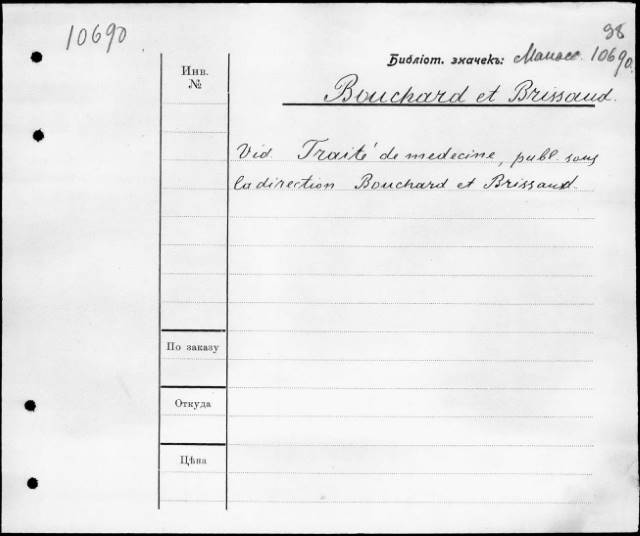 10690
38
Библіот. значекъ: Манасс. 10690.
Инв.
№
Bouchard et Brissaud.
Vid. Traité de medecine, publ. sous
la direction Bouchard et Brissaud.
По заказу
Откуда
Цѣна